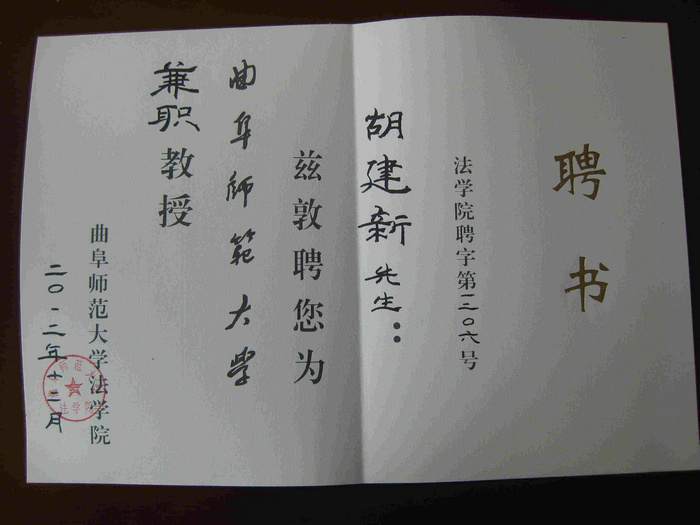 聘书
法学院聘字第一三〇六号
胡建新先生：
兹敦聘您为
曲阜师範大学
兼职教授
曲阜师范大学法学院
二〇一二年十二月
法学院